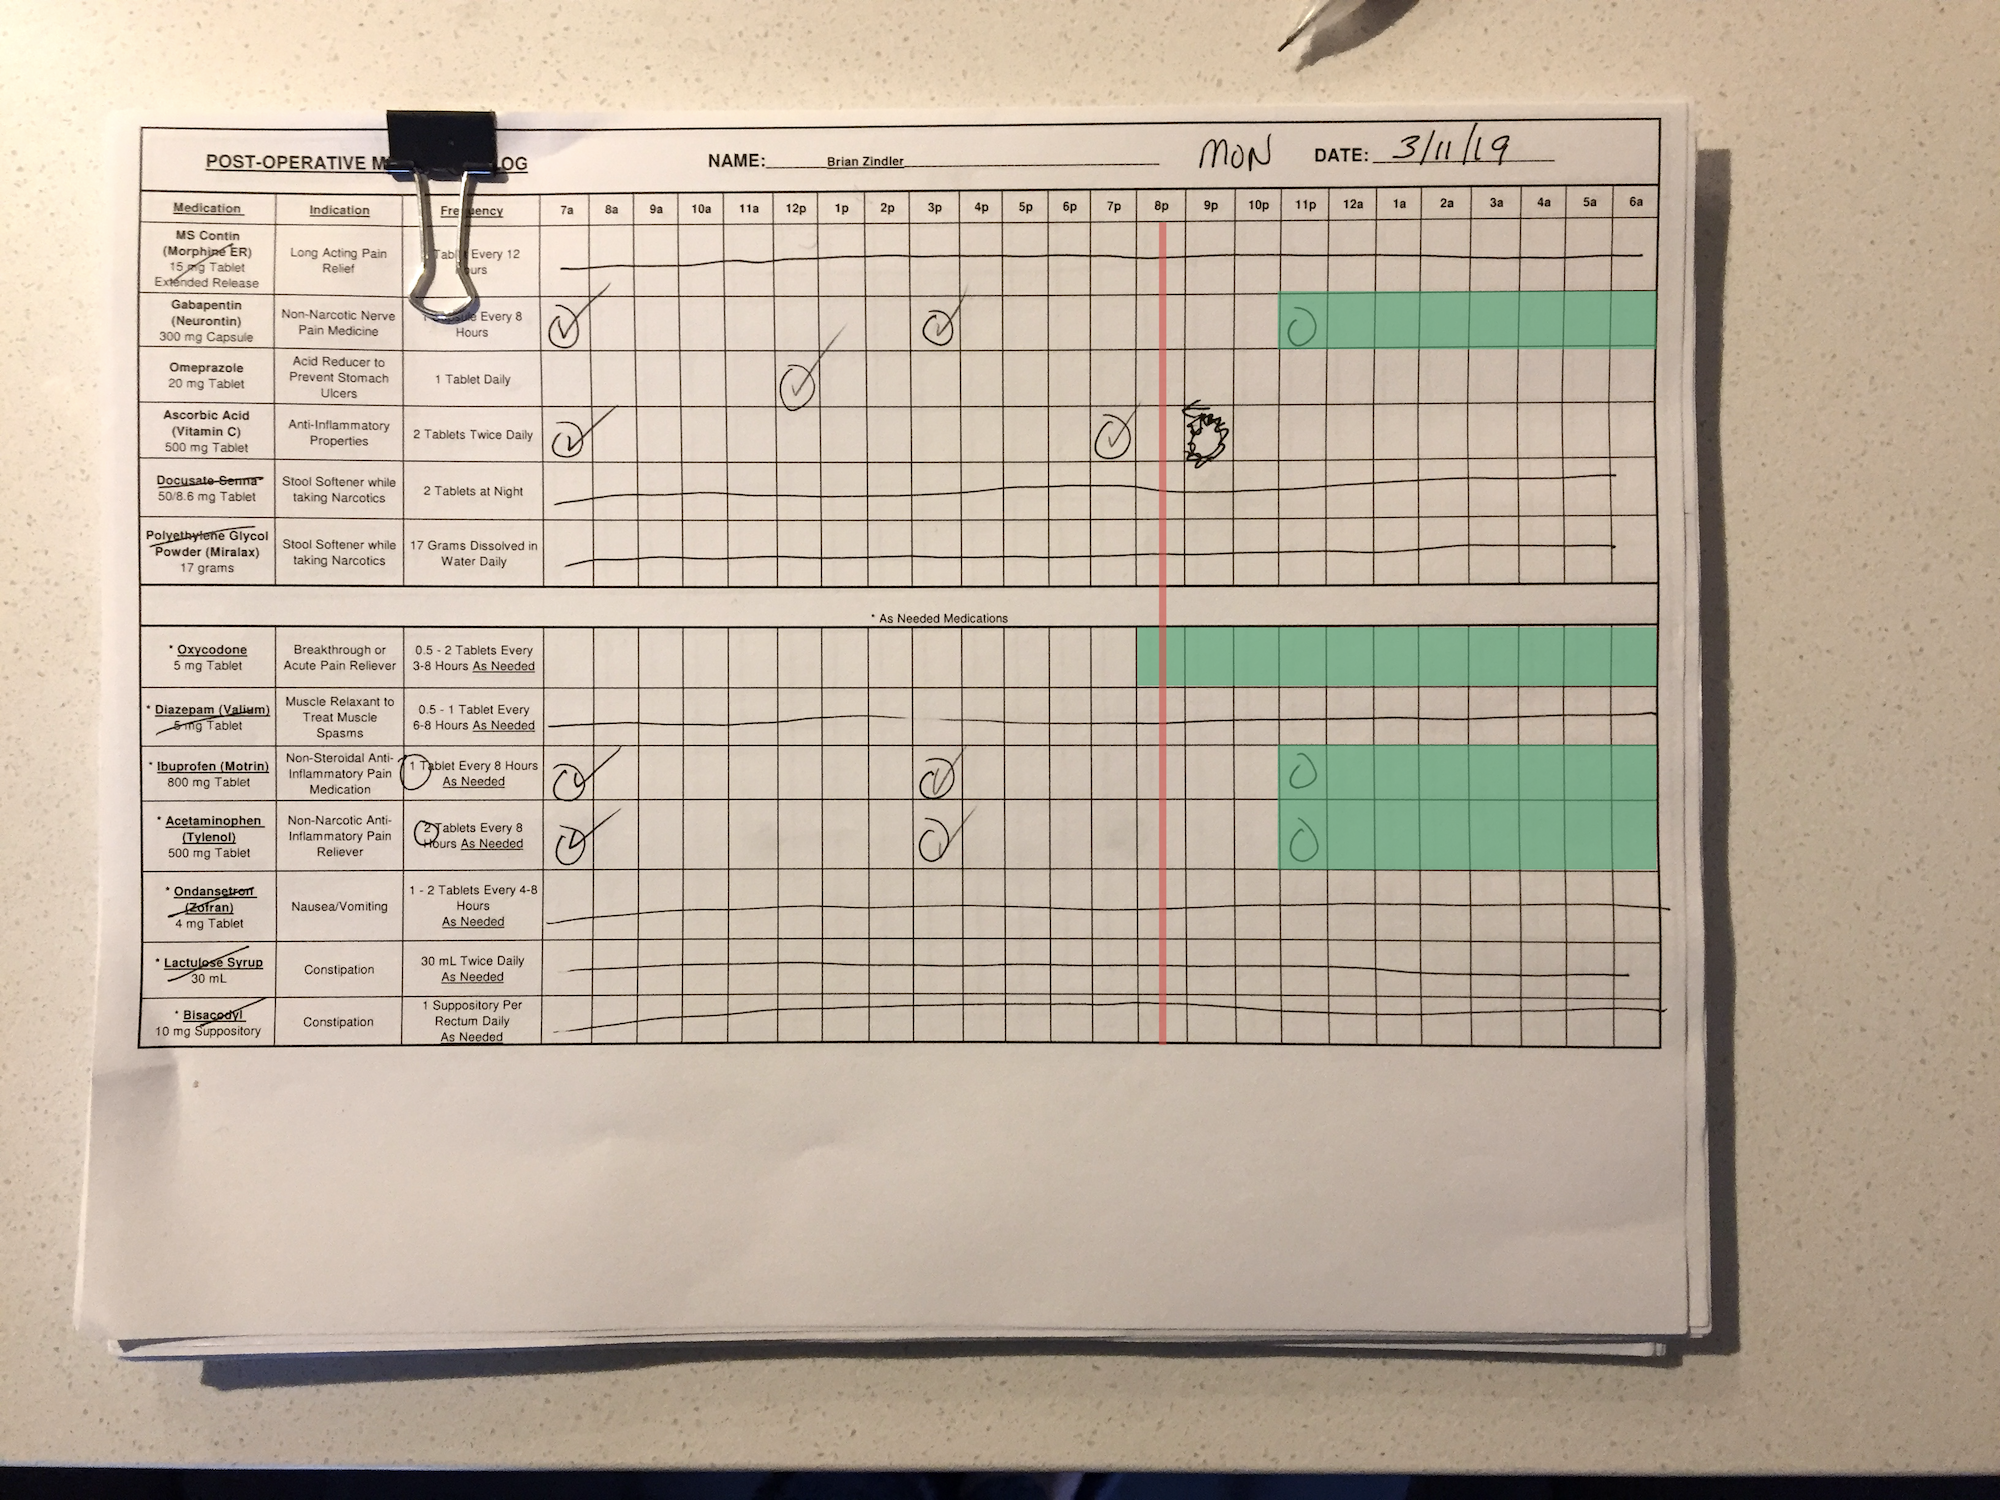 POST-OPERATIVE M LOG
NAME: Brian Zindler
MON
DATE: 3/11/19
Medication Indication Frequency 7a 8a 9a 10a 11a 12p 1p 2p 3p 4p 5p 6p 7p 8p 9p 10p 11p 12a 1a 2a 3a 4a 5a 6a
MS Contin
(Morphine ER)
15 mg Tablet
Extended Release
Long Acting Pain
Relief
Tablet Every 12
Hours
Gabapentin
(Neurontin)
300 mg Capsule
Non-Narcotic Nerve
Pain Medicine
1 Capsule Every 8
Hours
Omeprazole
20 mg Tablet
Acid Reducer to
Prevent Stomach
Ulcers
1 Tablet Daily
Ascorbic Acid
(Vitamin C)
500 mg Tablet
Anti-Inflammatory
Properties
2 Tablets Twice Daily
Docusate Senna
50/8.6 mg Tablet
Stool Softener while
taking Narcotics
2 Tablets at Night
Polyethylene Glycol
Powder (Miralax)
17 grams
Stool Softener while
taking Narcotics
17 Grams Dissolved in
Water Daily
* As Needed Medications
* Oxycodone
5 mg Tablet
Breakthrough or
Acute Pain Reliever
0.5 - 2 Tablets Every
3-8 Hours As Needed
* Diazepam (Valium)
5 mg Tablet
Muscle Relaxant to
Treat Muscle
Spasms
0.5 - 1 Tablet Every
6-8 Hours As Needed
* Ibuprofen (Motrin)
800 mg Tablet
Non-Steroidal Anti-
Inflammatory Pain
Medication
1 Tablet Every 8 Hours
As Needed
* Acetaminophen
(Tylenol)
500 mg Tablet
Non-Narcotic Anti-
Inflammatory Pain
Reliever
2 Tablets Every 8
Hours As Needed
* Ondansetron
(Zofran)
4 mg Tablet
Nausea/Vomiting
1 - 2 Tablets Every 4-8
Hours
As Needed
* Lactulose Syrup
30 mL
Constipation
30 mL Twice Daily
As Needed
* Bisacodyl
10 mg Suppository
Constipation
1 Suppository Per
Rectum Daily
As Needed